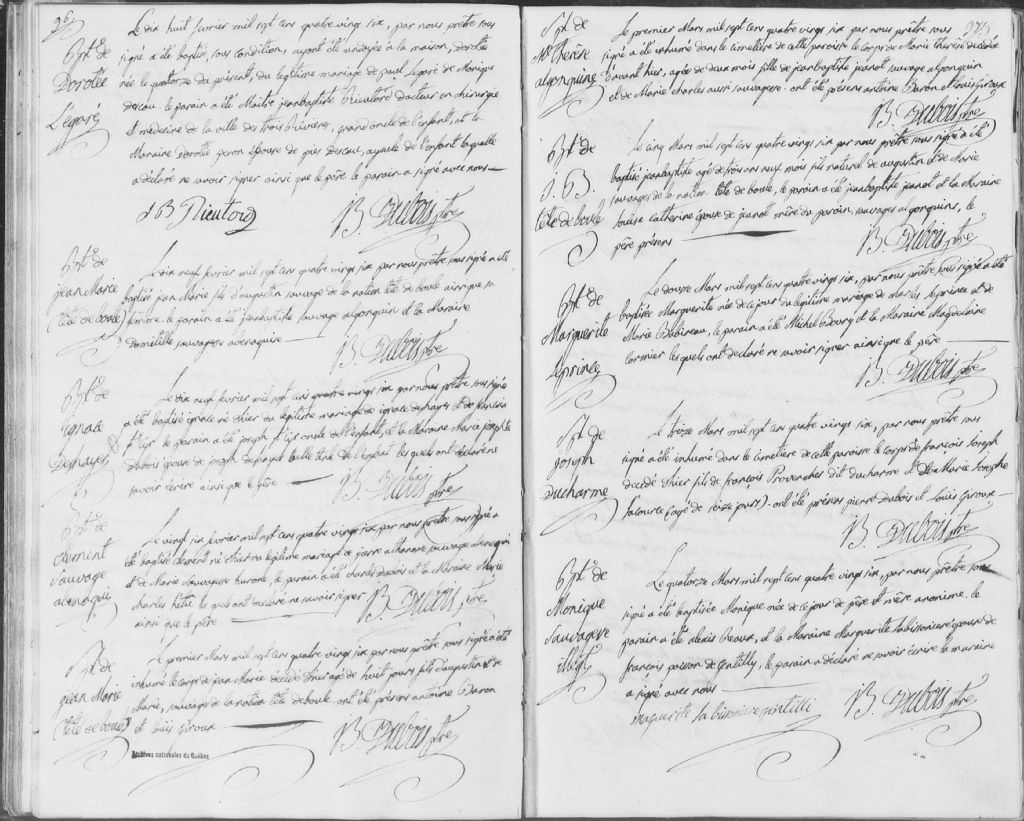 Le dix huit fevrier mil sept cens quatre vingt six, par nous prêtre sous
Bpt de
Dorotée
Legaré
signé a été baptisé, sous condition, ayant été ondoyée a la maison, dorotée
née le quatorze du présent, du legitime mariage de paul Legaré de Monique
descau. le parain a été Maitre jeanbaptiste Rieutord docteur en chirurgie
et medecine de la ville des trois Rivieres, grand oncle de l'enfant, et la
Maraine dorotée peron épouse de pier Descau, ayeule de l'enfant laquelle
a déclaré ne savoir signer ainsi que le père le parain a signé avec nous
J B Rieutord B. Dubois ptre
Bpt de
jean Marie
(tête de boule)
Le dix neuf fevrier mil sept cens quatre vingt six par nous prêtre sous signé a été
baptisé jean Marie fils d'augustin sauvage de la nation tête de boule ainsi que sa
femme. le parain a été jeanbaptiste sauvage algonquin et la Maraine
Domitille sauvagesse abenaquise
B. Dubois ptre
Bpt de
Ignace
Deshayes
Le dix neuf fevrier mil sept cens quatre vingt six par nous prêtre sous signé
a été baptisé ignace né d'hier du legitime mariage de ignace deshayes et de
St Cyr le parain a été joseph St Cyr oncle de l'enfant, et la Maraine Marie josephte
Dubois épouse de joseph de l'enfant les quels ont déclaré ne
savoir écrire ainsi que le père
B. Dubois ptre
Bpt de
Clement
Sauvage
abenaqui
Le vingt six fevrier mil sept cens quatre vingt six par nous prêtre sous signé a
été baptisé clement né d'hier du legitime mariage de pierre sauvage abenaqui
et de Marie sauvagesse hurone, le parain a été charles dubois et la Maraine Marie
charles les quels ont déclaré ne savoir signer
ainsi que le père
B. Dubois ptre
Spt de
jean Marie
(tête de boule)
Le premier Mars mil sept cens quatre vingt six par nous prêtre sous signé a été
inhumé le corps de jean Marie décédé d'hier agé de huit jours fils d'augustin et de
Marie, sauvages de la nation tête de boule. ont été présens antoine Baron
et Louis Giroux
B. Dubois ptre
Archives nationales du Québec
Spt de
Me Therêse
algonquine
Le premier Mars mil sept cens quatre vingt six, par nous prêtre sous
signé a été inhumé dans le cimetière de cette paroisse le corps de Marie Therèse décédée
d'avant hier, agée de deux mois fille de jeanbaptiste jeanot sauvage algonquin
et de Marie charles aussi sauvagesse. ont été présens antoine Baron et Louis Giroux
B. Dubois ptre
Bpt de
J. B.
tête de boule
Le cinq Mars mil sept cens quatre vingt six par nous prêtre sous signé a été
baptisé jeanbaptiste agé de trois ans neuf mois fils naturel de augustin et de Marie
sauvages de la nation tête de boule, le parain a été jeanbaptiste jeanot et la Maraine
Louise Catherine épouse de jeanot mère du parain, sauvages algonquins, le
père présent
B. Dubois ptre
Bpt de
Marguerite
Leprince
Le douze Mars mil sept cens quatre vingt six, par nous prêtre sous signé a été
baptisée Marguerite née de ce jour du legitime mariage de charles Leprince et de
Marie Babineau, le parain a été Michel Boury et la Maraine Magdelaine
Cormier les quels ont déclaré ne savoir signer ainsi que le père
B. Dubois ptre
Spt de
joseph
Ducharme
Le treize Mars mil sept cens quatre vingt six, par nous prêtre sous
signé a été inhumé dans le cimetière de cette paroisse le corps de françois joseph
décédé d'hier fils de françois Provencher dit ducharme et de Marie Josephe
Lacourse (agé de seize jours). ont été présens pierre Dubois et Louis Giroux
B. Dubois ptre
Bpt de
Monique
Sauvagesse
illégit
Le quatorze Mars mil sept cens quatre vingt six, par nous prêtre sous
signé a été baptisée Monique née de ce jour de père et mère anonime. le
parain a été alexis et la Maraine Marguerite Labissoniere épouse de
françois poisson de Gentilly, le parain a déclaré ne savoir écrire la maraine
a signé avec nous
B. Dubois ptre